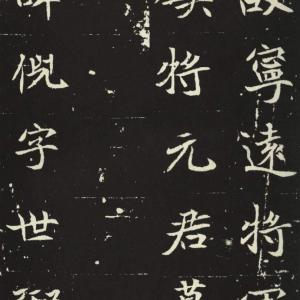 故寧遠將軍
將元君墓
諱倪字世